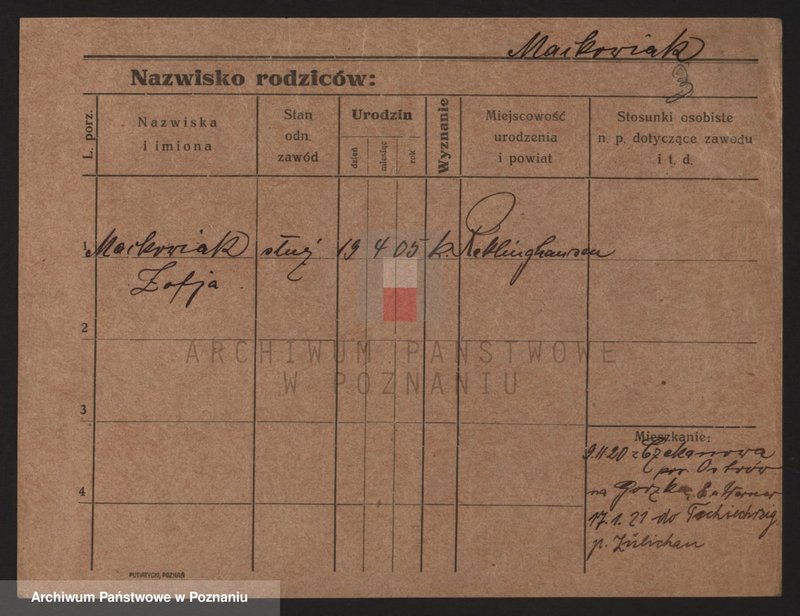 Maćkowiak
Nazwisko rodziców:
L. porz.
Nazwiska
i imiona
Stan
odn.
zawód
Urodzin
dzień
miesiąc
rok
Wyznanie
Miejscowość
urodzenia
i powiat
Stosunki osobiste
n. p. dotyczące zawodu
i t. d.
1 Maćkowiak służ 19 4 05 k. Reklinghausen
Zofja
2
ARCHIWUM PAŃSTWOWE
W POZNANIU
3
Mieszkanie:
9.11.20 z Czekanowa
pow Ostrów
4
na
17.1.21 do
p. Züllichau
PUTIATYCKI, POZNAŃ
Archiwum Państwowe w Poznaniu